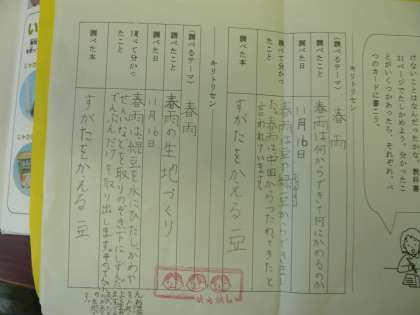 けないことはなんだろうか。教科書
31ページでたしかめよう。分かったこ
とがいくつかあったら、それぞれ、べ
つのカードに書こう。
キリトリセン
〈調べるテーマ〉
春雨
調べたこと
春雨は何からできて何にかわるのか
調べた日
11月16日
調べて分かっ
たこと
春雨は豆や緑豆からできまし
た。春雨は中国からつたわってきたと
言われています。
調べた本
すがたをかえる豆
キリトリセン
〈調べるテーマ〉
春雨
調べたこと
春雨の生地づくり
調べた日
11月16日
調べて分かっ
たこと
春雨は緑豆を水にひたし、かわや
せんいなどを取りのぞき下にしずんだ
でんぷんだけを取り出します。そのでんぷ
調べた本
すがたをかえる豆